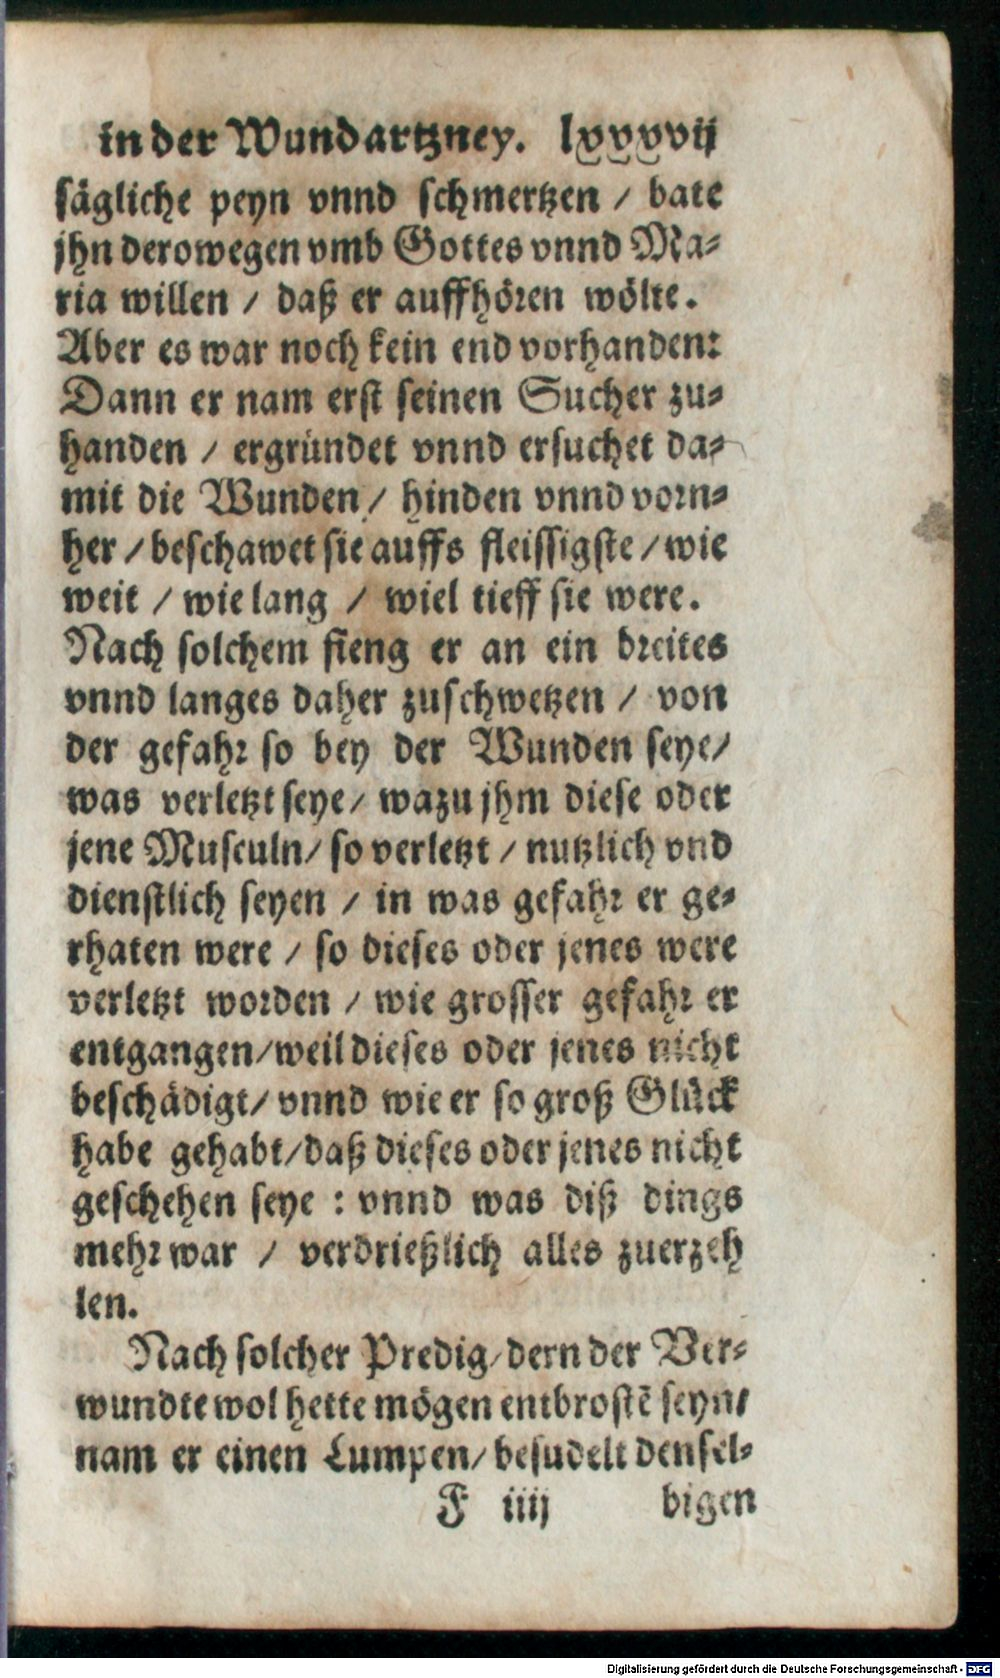 in der Wundartzney. lxxxvij
sägliche peyn vnnd schmertzen / bate
jhn derowegen vmb Gottes vnnd Ma-
ria willen / daß er auffhören wölte.
Aber es war noch kein end vorhanden:
Dann er nam erst seinen Sucher zu-
handen / ergründet vnnd ersuchet da-
mit die Wunden / hinden vnnd vorn-
her / beschawet sie auffs fleissigste / wie
weit / wie lang / wiel tieff sie were.
Nach solchem fieng er an ein breites
vnnd langes daher zuschwetzen / von
der gefahr so bey der Wunden seye /
was verletzt seye / wazu jhm diese oder
jene Musculn / so verletzt / nutzlich vnd
dienstlich seyen / in was gefahr er ge-
rhaten were / so dieses oder jenes were
verletzt worden / wie grosser gefahr er
entgangen / weil dieses oder jenes nicht
beschädigt / vnnd wie er so groß Glück
habe gehabt / daß dieses oder jenes nicht
geschehen seye : vnnd was diß dings
mehr war / verdrießlich alles zuerzeh
len.
Nach solcher Predig / dern der Ver-
wundte wol hette mögen entbrostẽ seyn /
nam er einen Lumpen / besudelt densel-
F iiij bigen
Digitalisierung gefördert durch die Deutsche Forschungsgemeinschaft - DFG